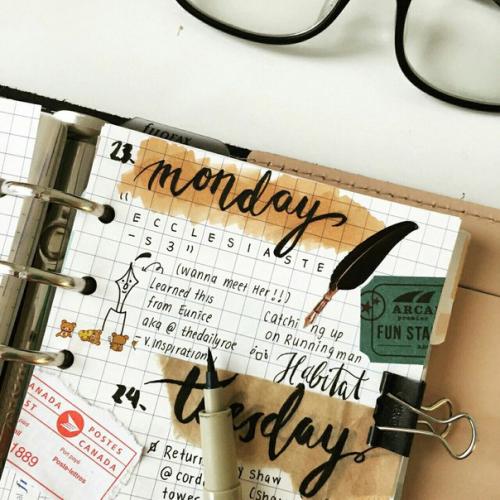 filofax
23. monday
"ECCLESIASTE
- S 3"
(wanna meet Her!!)
Learned this
from Eunice
aka @thedailyroe
v. inspiration
Catching up
on Runningman
Habitat
ARCA
premier
FUN STA
24. tuesday
Return my shaw
@cord
tower
(Shaw
CANADA
POST
POSTES
CANADA
Port payé
Poste-lettres
1889